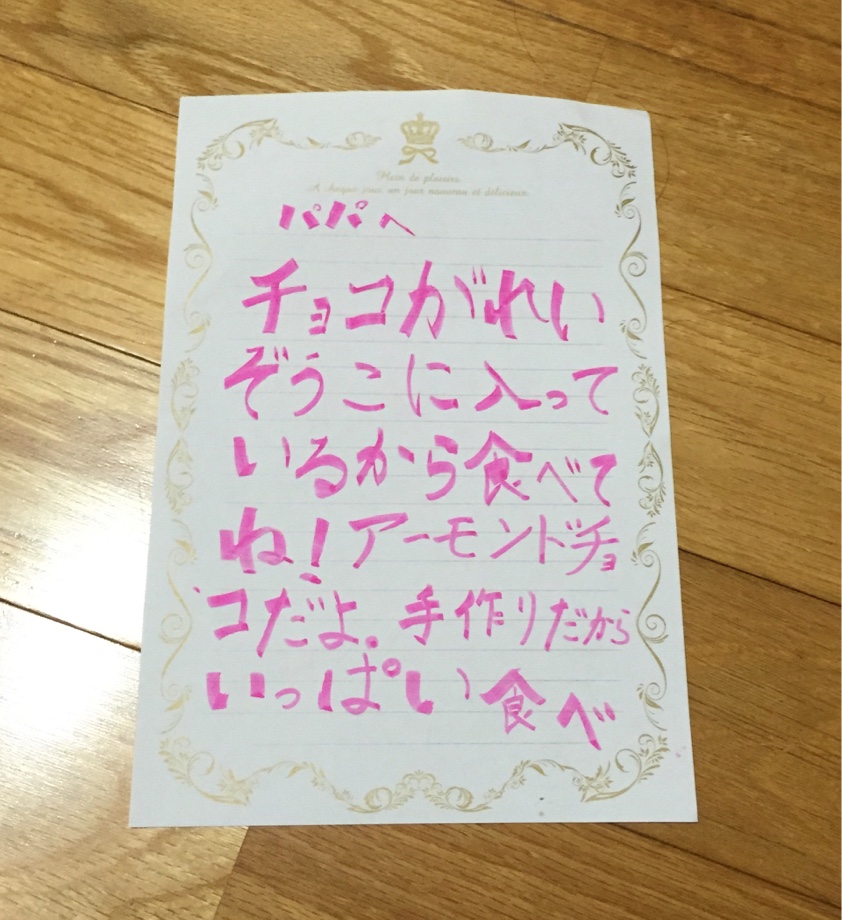 Plein de plaisirs.
A chaque jour, un jour nouveau et délicieux.
パパへ
チョコがれい
ぞうこに入って
いるから食べて
ね!アーモンドチョ
コだよ。手作りだから
いっぱい食べ